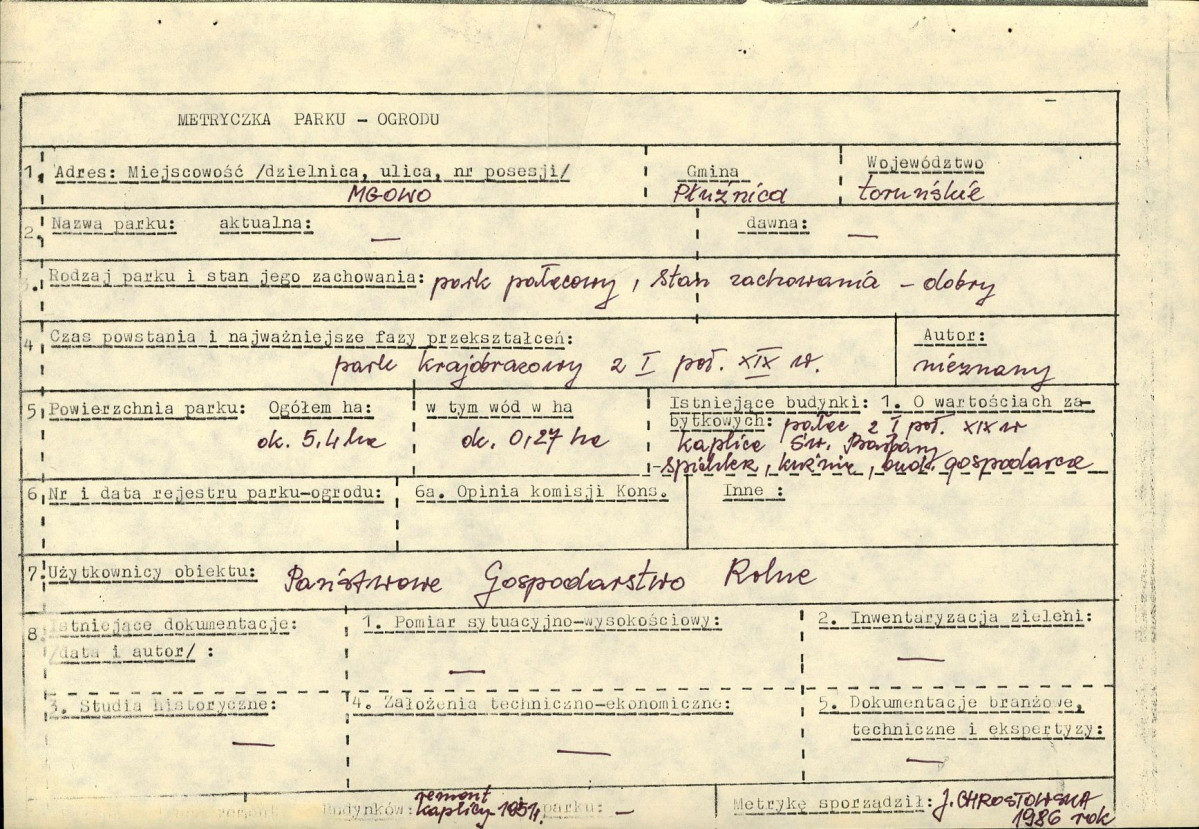 METRYCZKA PARKU - OGRODU
1. Adres: Miejscowość /dzielnica, ulica, nr posesji/ Gmina Województwo
MGOWO Płużnica toruńskie
2. Nazwa parku: aktualna: — dawna: —
3. Rodzaj parku i stan jego zachowania: park pałacowy, stan zachowania - dobry
4 Czas powstania i najważniejsze fazy przekształceń: Autor:
park krajobrazowy z I poł. XIX w. nieznany
5. Powierzchnia parku: Ogółem ha: w tym wód w ha Istniejące budynki: 1. O wartościach za-
ok. 5,4 ha ok. 0,27 ha bytkowych: pałac z I poł. XIX w
kaplica Św. Barbary
-spichlerz, kuźnia, bud. gospodarcze
6. Nr i data rejestru parku-ogrodu: 6a. Opinia komisji Kons. Inne :
7. Użytkownicy obiektu: Państwowe Gospodarstwo Rolne
8. Istniejące dokumentacje: 1. Pomiar sytuacyjno-wysokościowy: 2. Inwentaryzacja zieleni:
/data i autor/ : — —
3. Studia historyczne: 4. Założenia techniczno-ekonomiczne: 5. Dokumentacje branżowe,
techniczne i ekspertyzy:
— — —
Budynków: remont parku: — Metrykę sporządził: J. CHROSTOWSKA
kaplicy 1951r. 1986 rok